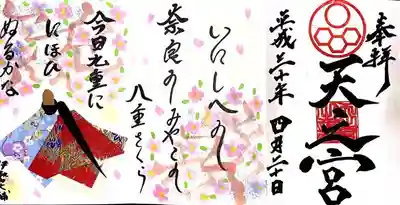 奉拝
天之宮
平成三十年 四月二十日
いにしへの
奈良のみやこの
八重さくら
今日九重に
にほひ
ぬるかな
伊勢大輔